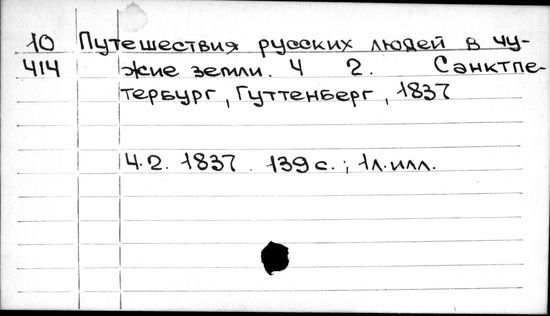 10 Путешествия русских людей в чу-
414 жие земли. Ч 2. Санктпе-
тербург, Гуттенберг, 1837
Ч.2. 1837. 139 с.; 1л.илл.